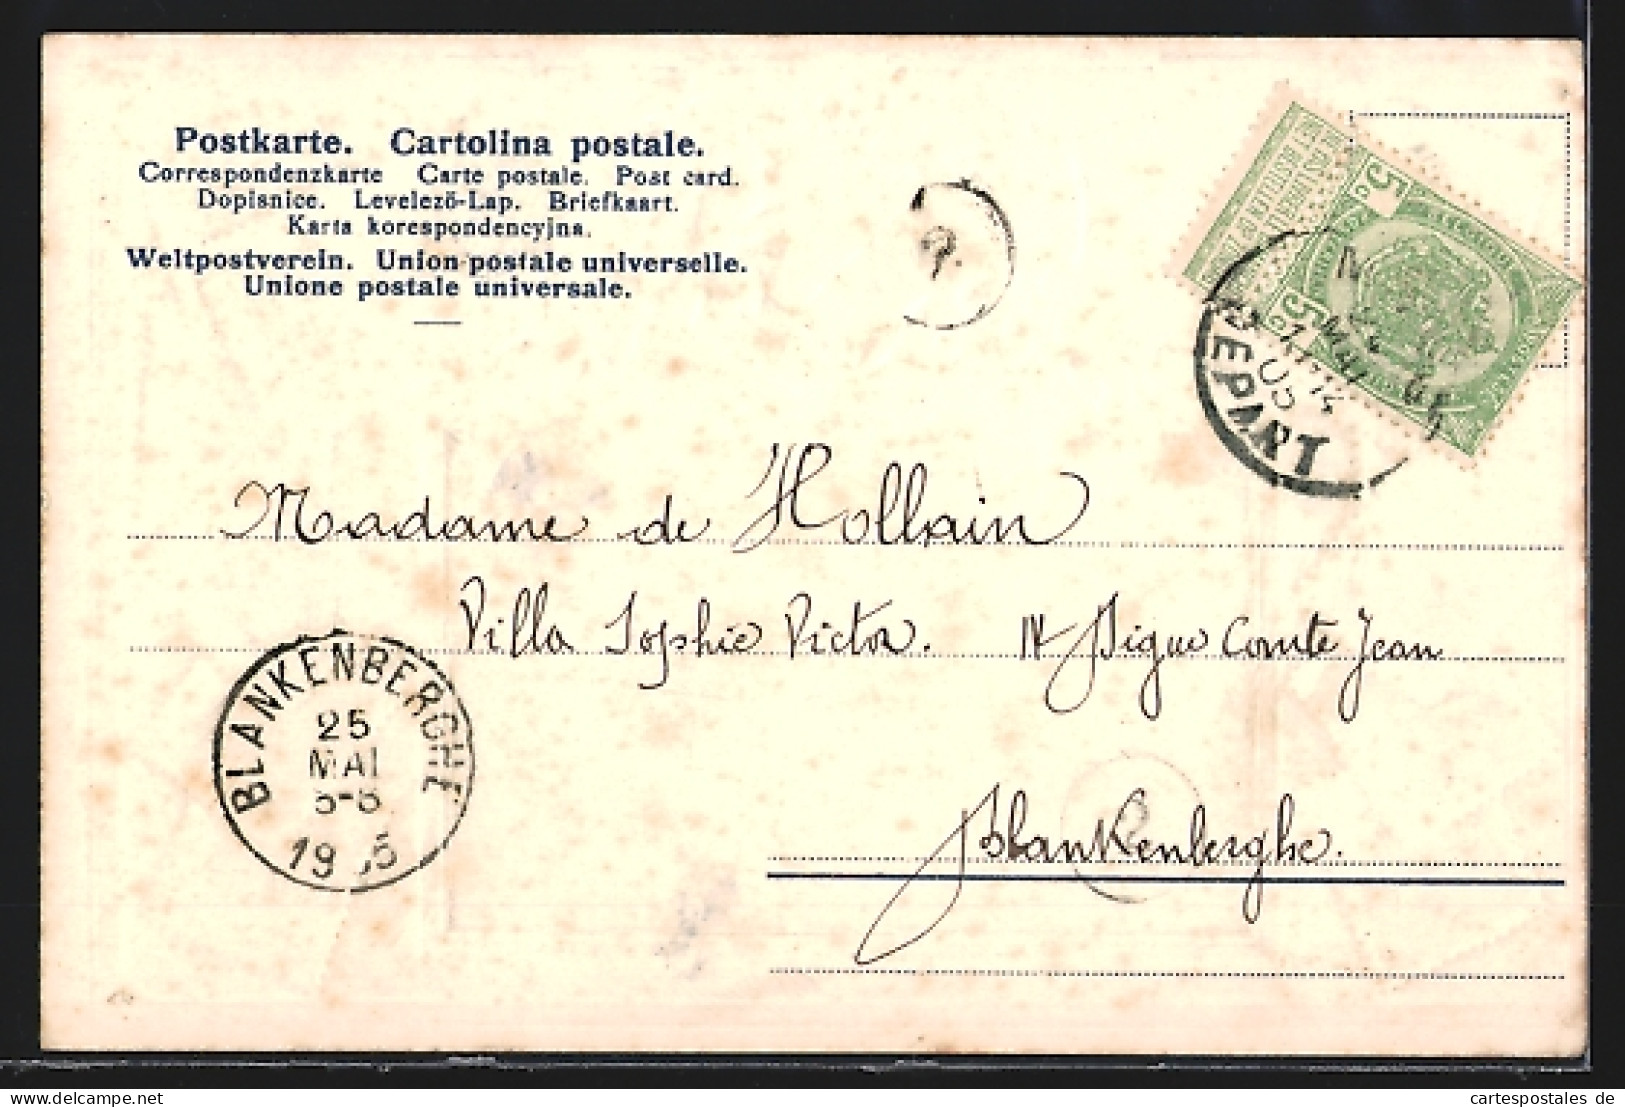 Postkarte. Cartolina postale.
Correspondenzkarte Carte postale. Post card.
Dopisnice. Levelező-Lap. Briefkaart.
Karta korespondencyjna.
Weltpostverein. Union postale universelle.
Unione postale universale.
5c
5c
Madame de Hollain
Villa Sophie Victor. Digue Comte Jean
BLANKENBERGHE
25
MAI
Blankenberghe.
cartespostales de